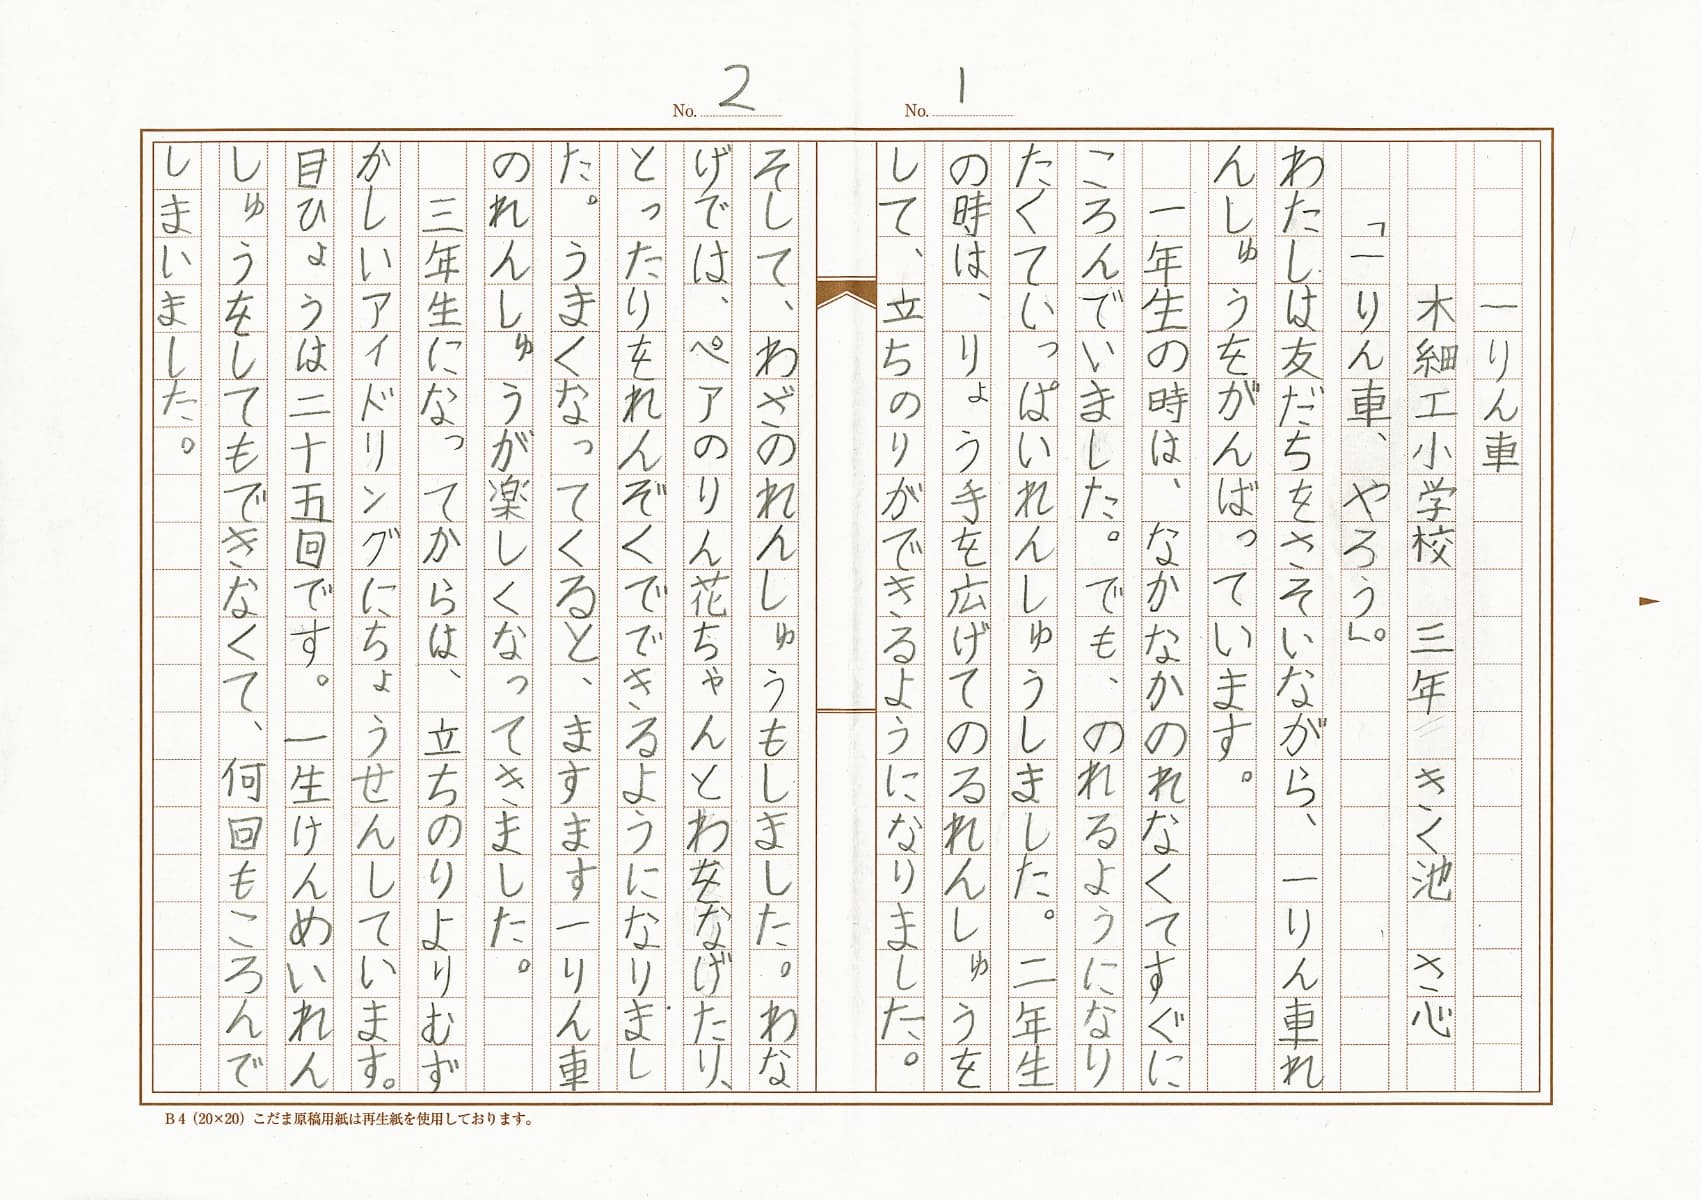 No. 1
一りん車
木細工小学校 三年 きく池 さ心
「一りん車、やろう」。
わたしは友だちをさそいながら、一りん車れ
んしゅうをがんばっています。
一年生の時は、なかなかのれなくてすぐに
ころんでいました。でも、のれるようになり
たくていっぱいれんしゅうしました。二年生
の時は、りょう手を広げてのるれんしゅうを
して、立ちのりができるようになりました。
No. 2
そして、わざのれんしゅうもしました。わな
げでは、ペアのりん花ちゃんとわをなげたり、
とったりをれんぞくでできるようになりまし
た。うまくなってくると、ますます一りん車
のれんしゅうが楽しくなってきました。
三年生になってからは、立ちのりよりむず
かしいアイドリングにちょうせんしています。
目ひょうは二十五回です。一生けんめいれん
しゅうをしてもできなくて、何回もころんで
しまいました。
B4（20×20）こだま原稿用紙は再生紙を使用しております。